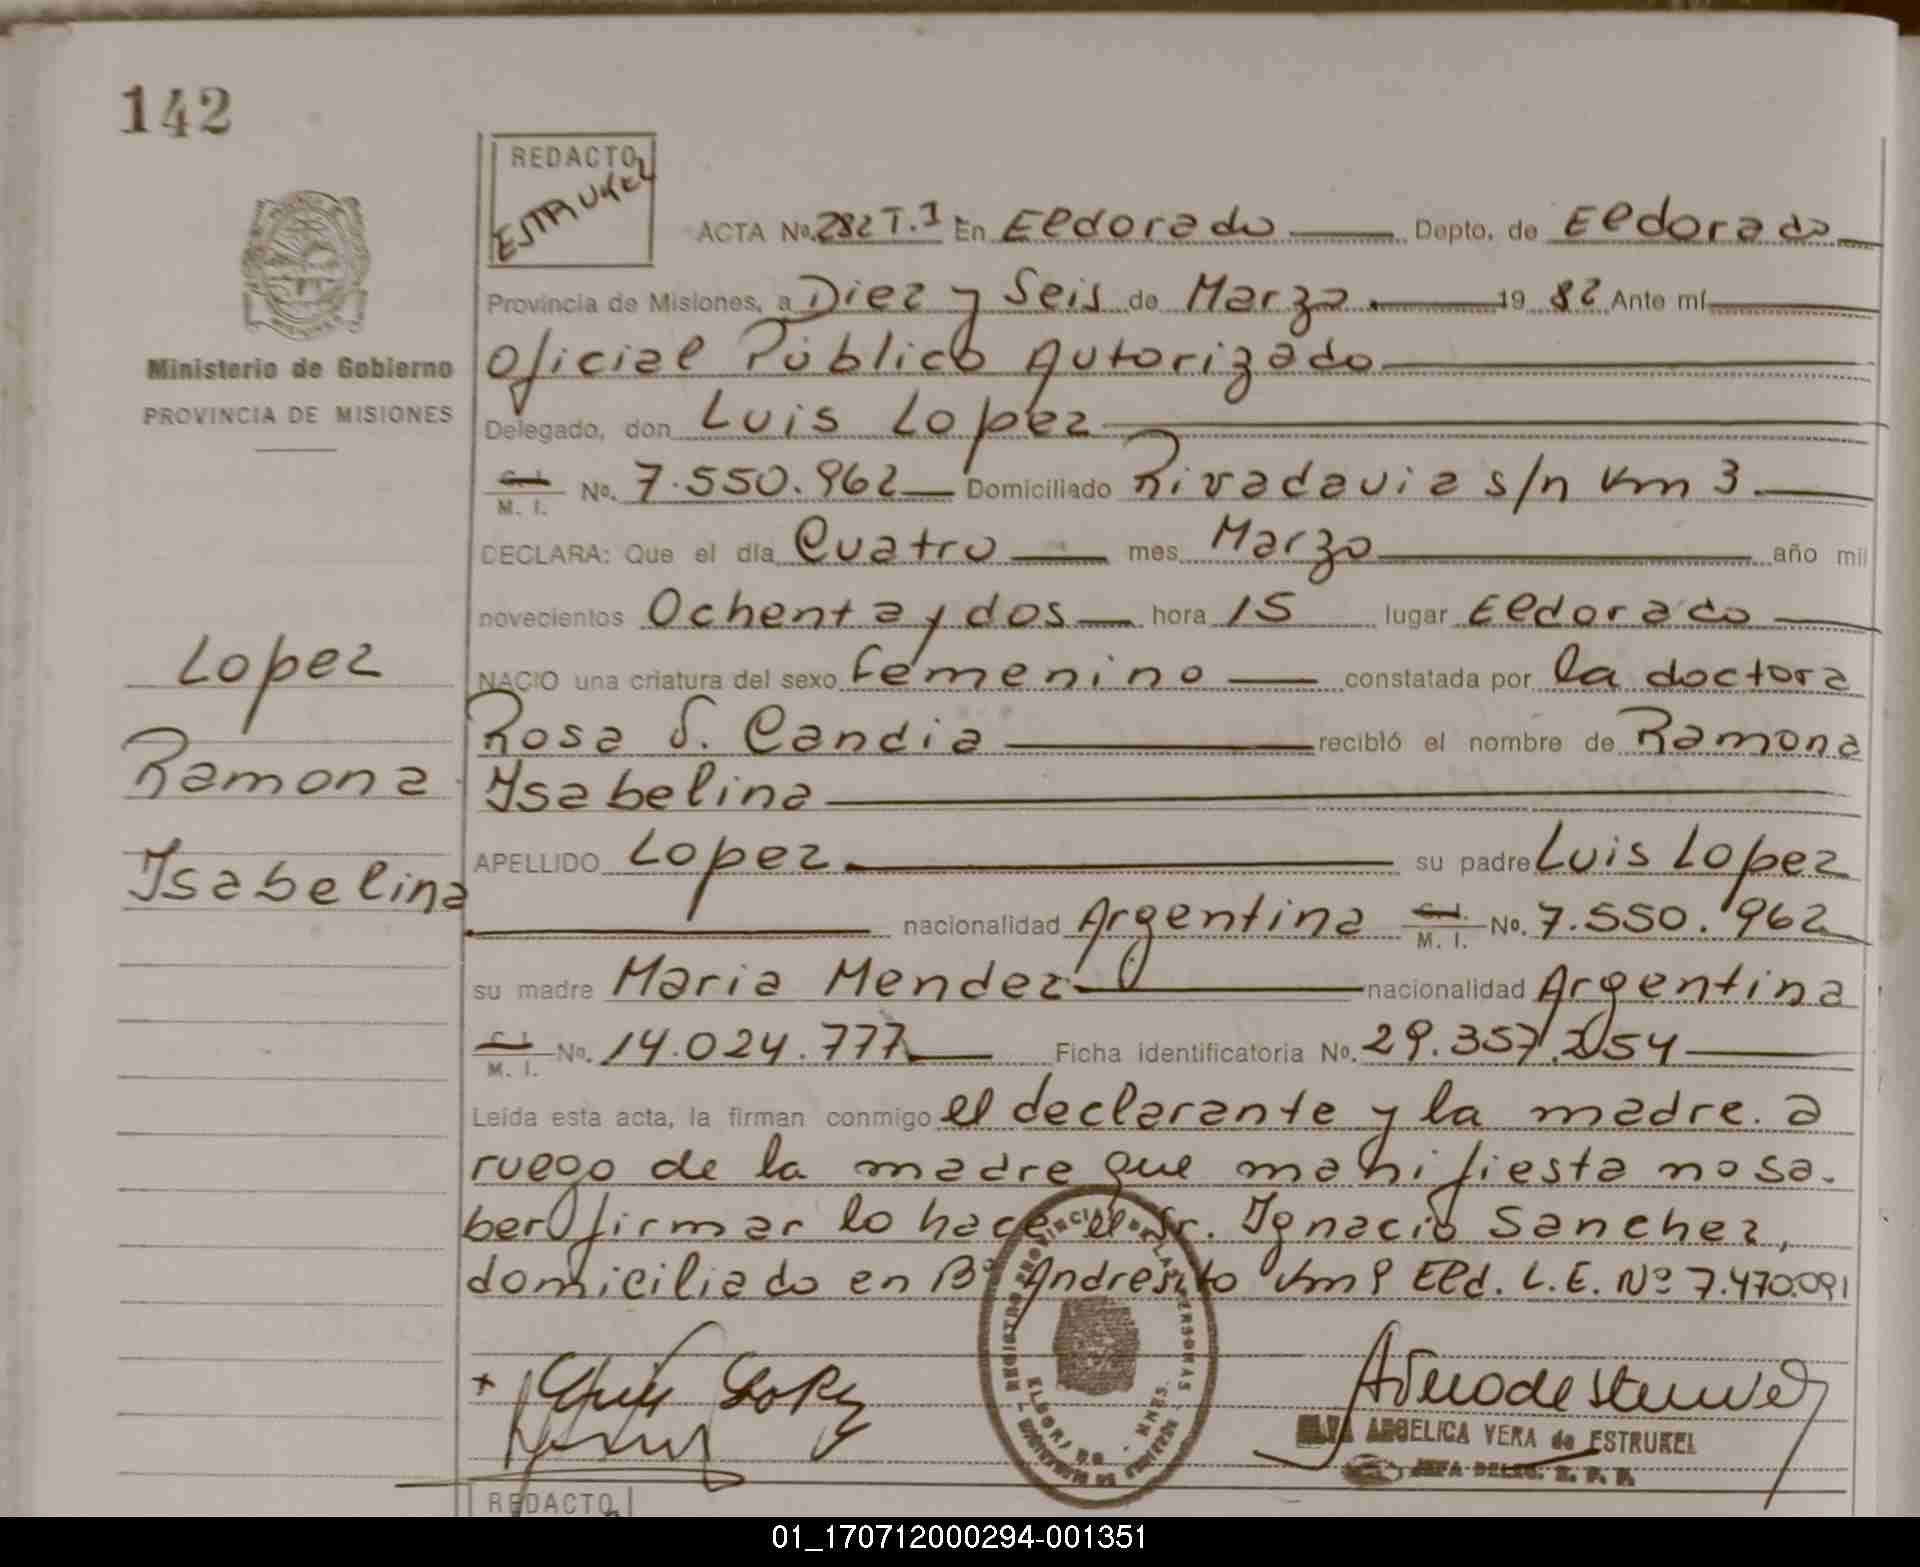 142
REDACTO
ESTRUKEL
ACTA No. 282 T.1 En Eldorado Depto. de Eldorado
Provincia de Misiones, a Diez y Seis de Marzo 19 82 Ante mí
Oficial Público Autorizado
Ministerio de Gobierno
PROVINCIA DE MISIONES
Delegado, don Luis Lopez
C. I. M. I. No. 7.550.962 Domiciliado Rivadavia s/n Km 3
DECLARA: Que el día Cuatro mes Marzo año mil
novecientos Ochenta y dos hora 15 lugar Eldorado
Lopez
Ramona
Isabelina
NACIO una criatura del sexo femenino constatada por la doctora
Rosa S. Candia recibió el nombre de Ramona
Isabelina
APELLIDO Lopez su padre Luis Lopez
nacionalidad Argentina C. I. M. I. No. 7.550.962
su madre Maria Mendez nacionalidad Argentina
C. I. M. I. No. 14.024.777 Ficha identificatoria No. 29.357.254
Leída esta acta, la firman conmigo el declarante y la madre. a
ruego de la madre que manifiesta no sa-
ber firmar lo hace el Sr. Ignacio Sanchez,
domiciliado en Bº Andresito Km 9 Eld. L.E. Nº 7.470.091
REGISTRO PROVINCIAL DE LAS PERSONAS
ELDORADO - MNES.
+ Luis Lopez
ANGELICA VERA de ESTRUKEL
JEFA DELEG. R. P. P.
REDACTO
01_170712000294-001351